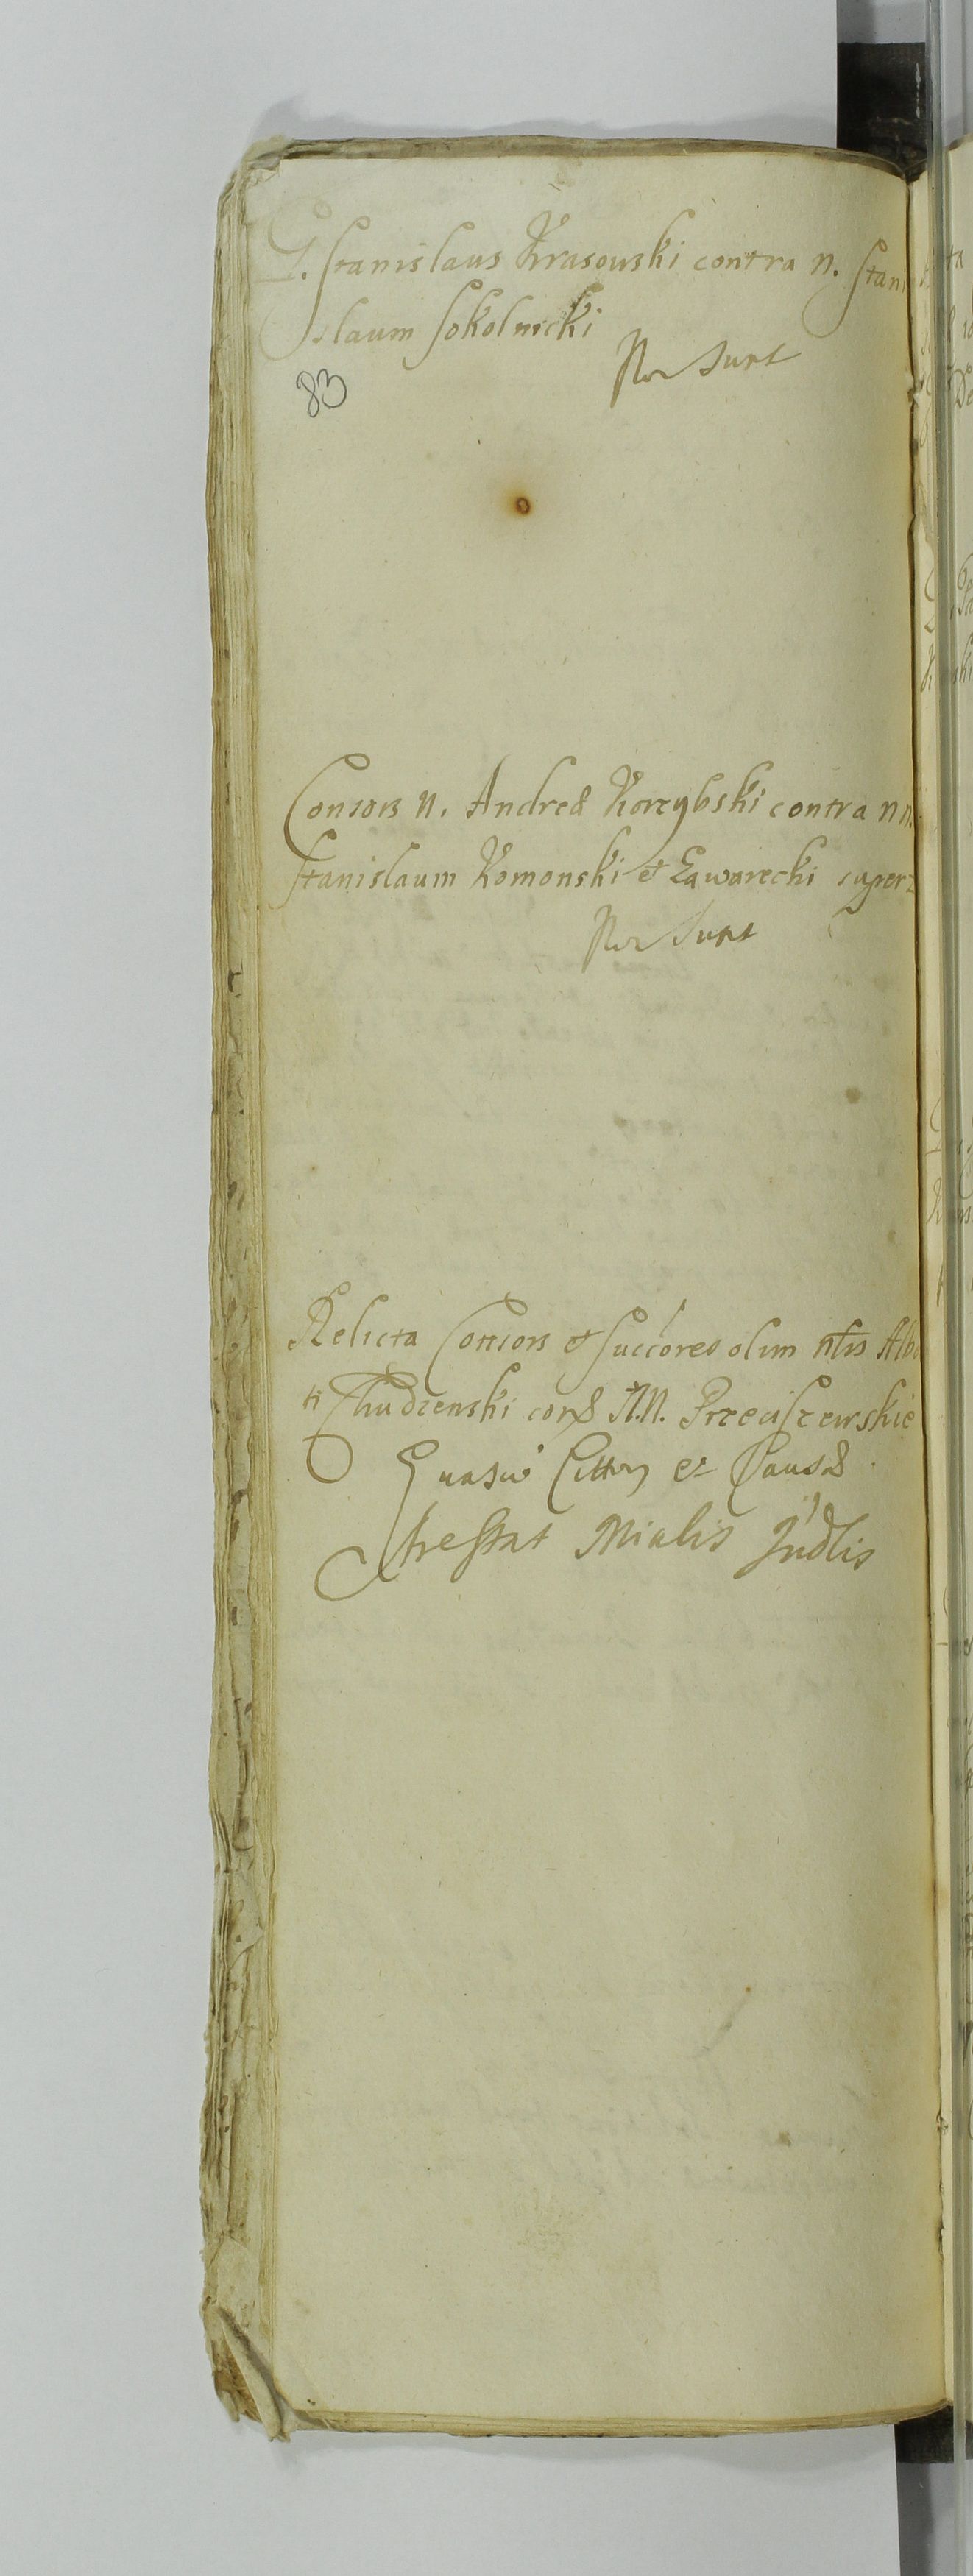 G. Stanislaus Krasowski contra N. Stani
slaum Sokolnicki
Non Sunt
83
Consors N. Andreæ Korzybski contra NN.
Stanislaum Komonski et Zawarecki super
Non Sunt
Relicta Consors et Succores olim nlis Alb
ti Chudzenski N.N. Przeciszewskie
et Causæ
Mialis Judlis